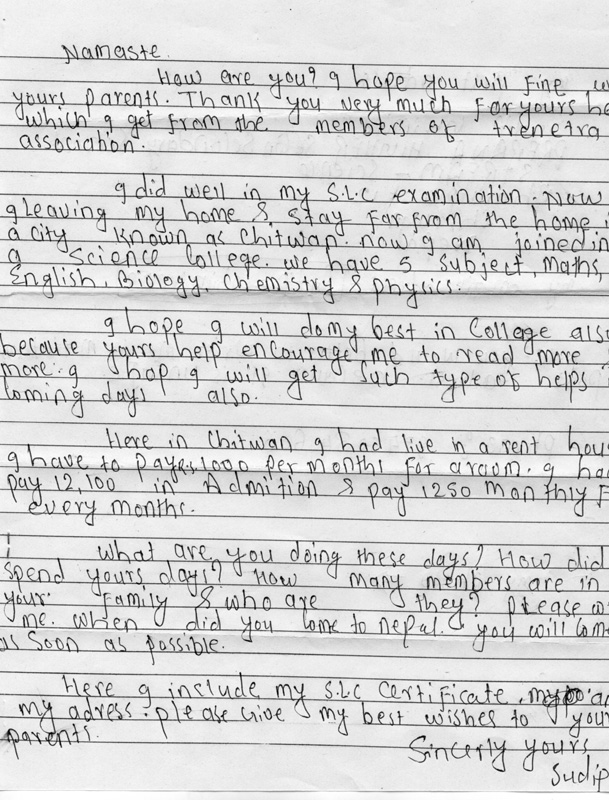 Namaste.
How are you? I hope you will fine
yours parents. Thank you very much for yours he
which I get from the members of trenetra
association.
I did well in my S.L.C examination. Now
I leaving my home & stay far from the home i
a city known as Chitwan. now I am joined in
a Science College. we have 5 subject, Maths,
English, Biology, Chemistry & physics.
I hope I will do my best in College also
because yours help encourage me to read more
more. I hop I will get Such type of helps
Coming days also.
Here in Chitwan I had live in a rent hou
I have to pay Rs. 1000 per months for a room. I ha
pay 12,100 in Admition & pay 1250 Monthly F
every months.
what are you doing these days? How did
spend yours days? How many members are in
your family & who are they? please w
me. when did you come to nepal. you will Come
as Soon as possible.
Here I include my S.L.C Certificate,
my adress. please Give my best wishes to your
parents.
Sincerly yours
Sudip